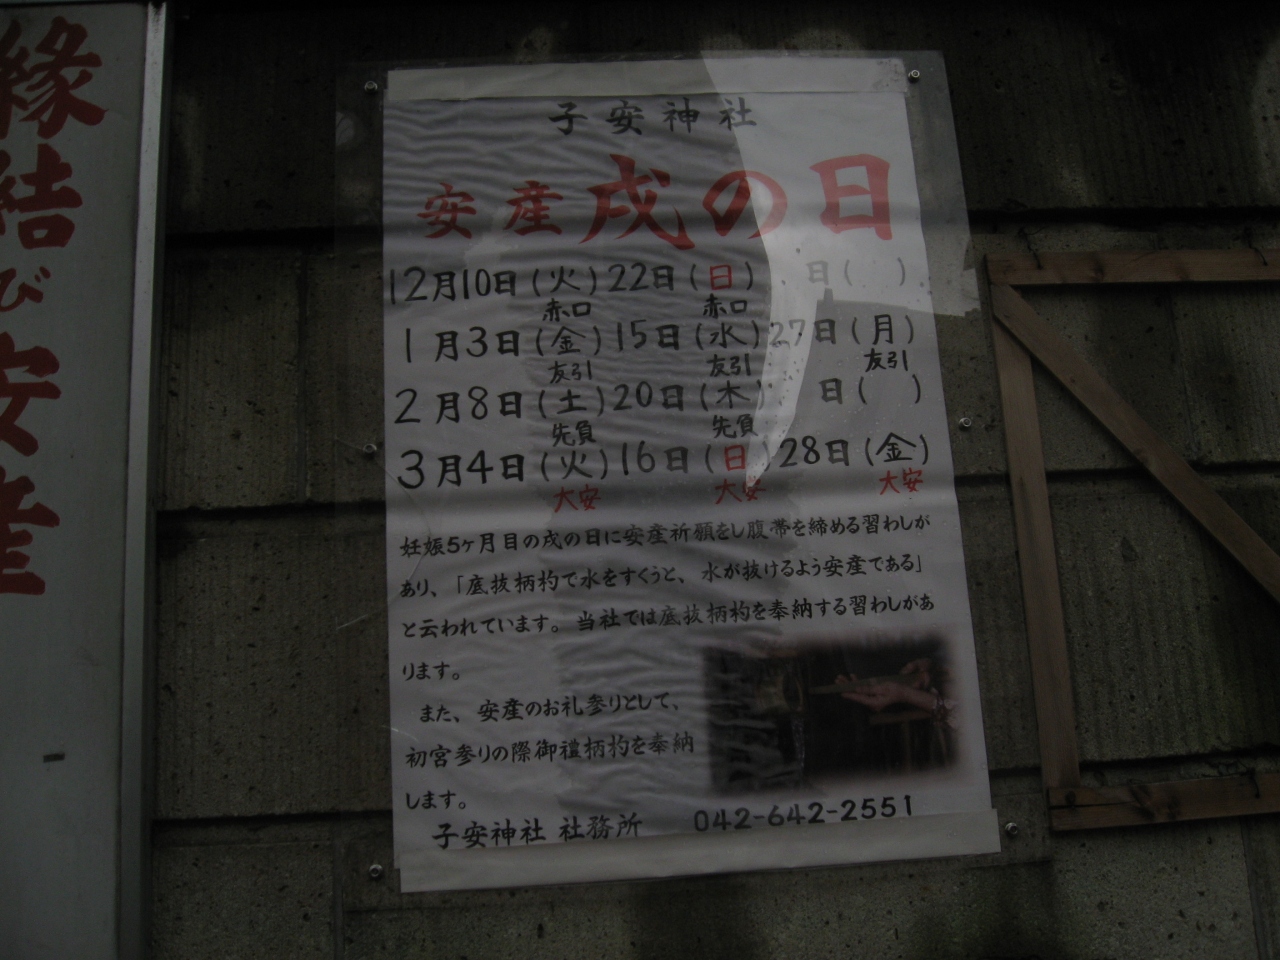 縁結び安産
子安神社
安産戌の日
12月10日(火) 22日(日) 日( )
赤口 赤口
1月3日(金) 15日(水) 27日(月)
友引 友引 友引
2月8日(土) 20日(木) 日( )
先負 先負
3月4日(火) 16日(日) 28日(金)
大安 大安 大安
妊娠5ヶ月目の戌の日に安産祈願をし腹帯を締める習わしが
あり、「底抜柄杓で水をすくうと、水が抜けるよう安産である」
と云われています。当社では底抜柄杓を奉納する習わしがあ
ります。
また、安産のお礼参りとして、
初宮参りの際御禮柄杓を奉納
します。
子安神社 社務所 042-642-2551